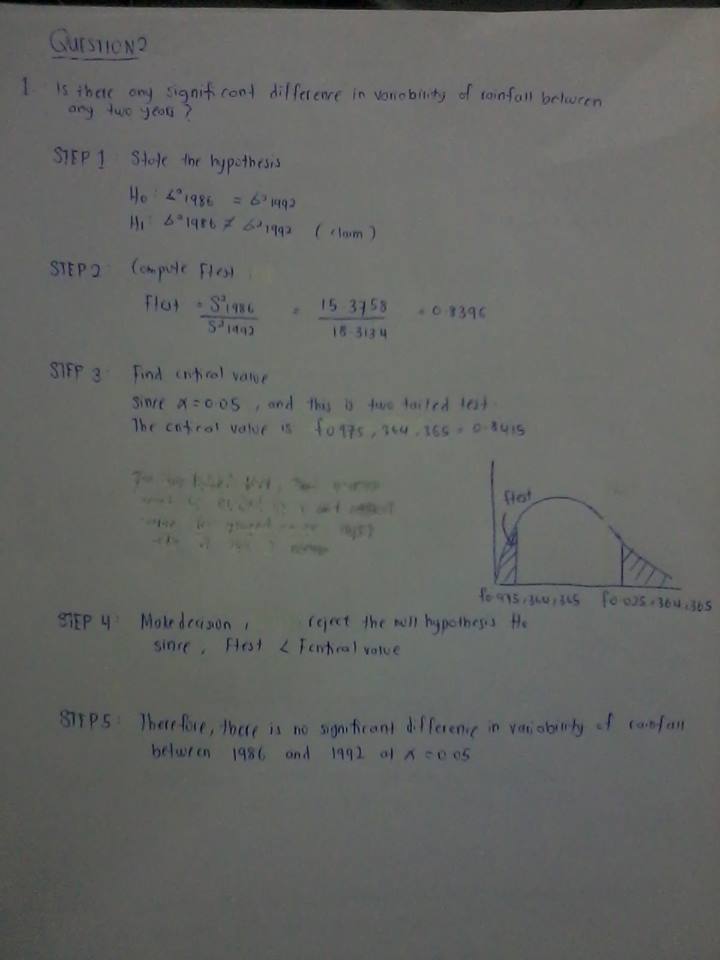 QUESTION 2
1 Is there any significant difference in variability of rainfall between
any two years?
STEP 1: State the hypothesis
H₀: σ²1986 = σ²1992
H₁: σ²1986 ≠ σ²1992 (claim)
STEP 2: Compute Ftest
Ftest = S²1986 / S²1992 = 15.3758 / 18.3134 = 0.8396
STEP 3: Find critical value
since α=0.05, and this is two tailed test.
The critical value is f0.975, 364, 365 = 0.8415
Ftest
f0.975, 364, 365 f0.025, 364, 365
STEP 4: Make decision, reject the null hypothesis H₀
since, Ftest < Fcritical value
STEP 5: Therefore, there is no significant difference in variability of rainfall
between 1986 and 1992 at α=0.05